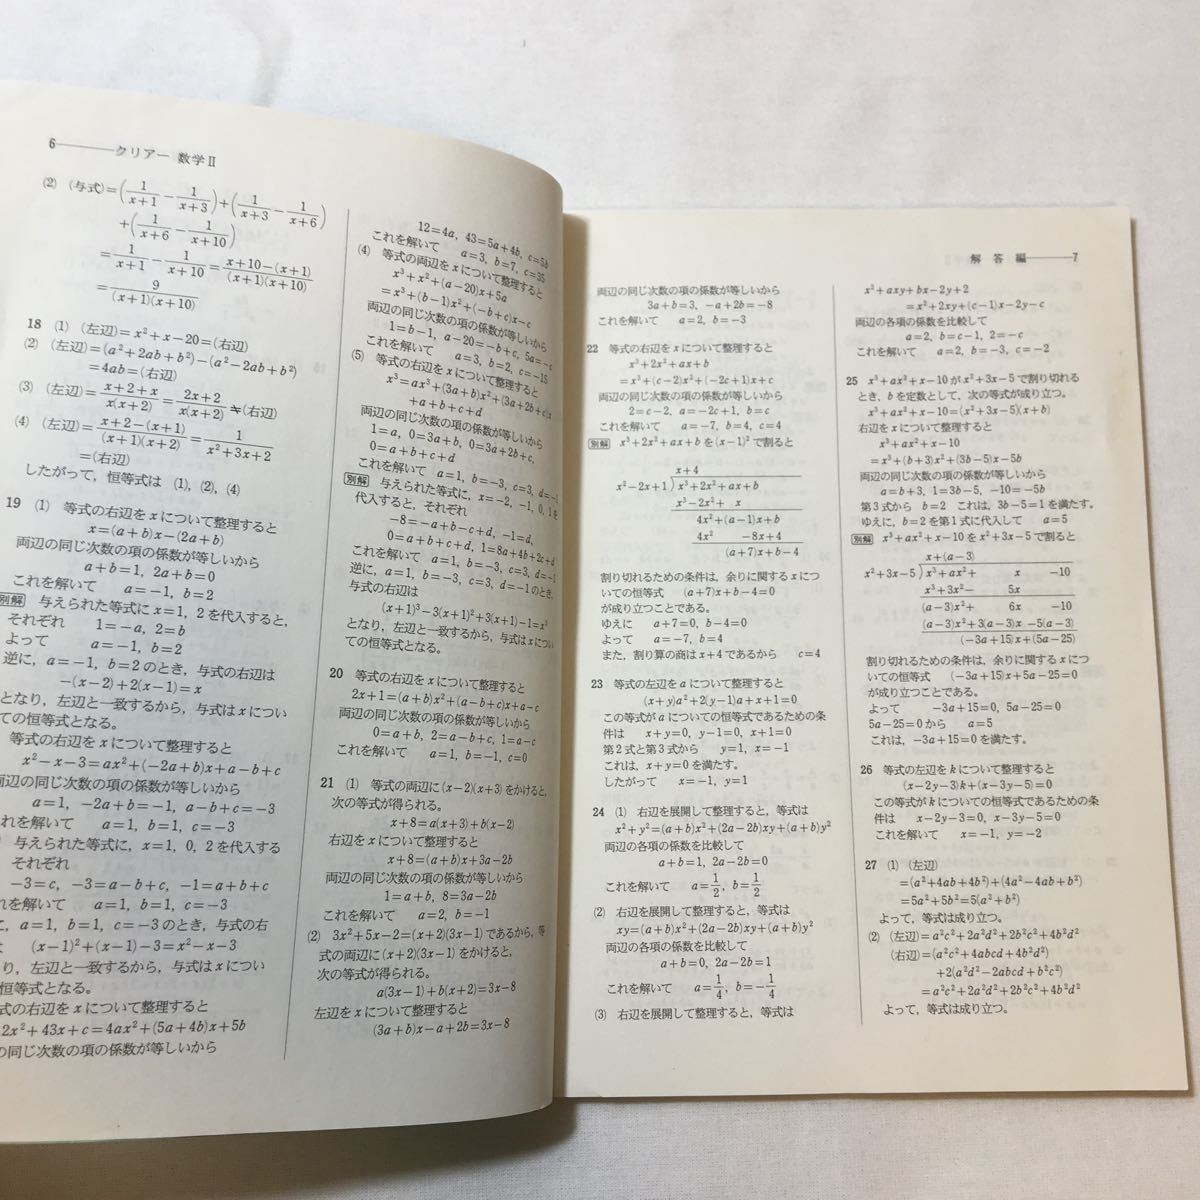 6 クリアー 数学Ⅱ
(2) (与式)=(1/(x+1) − 1/(x+3))+(1/(x+3) − 1/(x+6))
+(1/(x+6) − 1/(x+10))
=1/(x+1) − 1/(x+10) = (x+10−(x+1))/((x+1)(x+10))
=9/((x+1)(x+10))
18 (1) (左辺)=x²+x−20=(右辺)
(2) (左辺)=(a²+2ab+b²)−(a²−2ab+b²)
=4ab=(右辺)
(3) (左辺)=(x+2+x)/(x(x+2))=(2x+2)/(x(x+2))≠(右辺)
(4) (左辺)=(x+2−(x+1))/((x+1)(x+2))=1/(x²+3x+2)
=(右辺)
したがって，恒等式は (1), (2), (4)
19 (1) 等式の右辺をxについて整理すると
x=(a+b)x−(2a+b)
両辺の同じ次数の項の係数が等しいから
a+b=1, 2a+b=0
これを解いて a=−1, b=2
別解 与えられた等式に x=1, 2 を代入すると，
それぞれ 1=−a, 2=b
よって a=−1, b=2
逆に，a=−1, b=2 のとき，与式の右辺は
−(x−2)+2(x−1)=x
となり，左辺と一致するから，与式はxについ
ての恒等式となる。
等式の右辺をxについて整理すると
x²−x−3=ax²+(−2a+b)x+a−b+c
両辺の同じ次数の項の係数が等しいから
a=1, −2a+b=−1, a−b+c=−3
これを解いて a=1, b=1, c=−3
与えられた等式に，x=1, 0, 2 を代入する
それぞれ
−3=c, −3=a−b+c, −1=a+b+c
れを解いて a=1, b=1, c=−3
a=1, b=1, c=−3 のとき，与式の右
は (x−1)²+(x−1)−3=x²−x−3
り，左辺と一致するから，与式はxについ
恒等式となる。
式の右辺をxについて整理すると
2x²+43x+c=4ax²+(5a+4b)x+5b
の同じ次数の項の係数が等しいから
12=4a, 43=5a+4b, c=5b
これを解いて a=3, b=7, c=35
(4) 等式の両辺をxについて整理すると
x³+x²+(a−20)x+5a
=x³+(b−1)x²+(−b+c)x−c
両辺の同じ次数の項の係数が等しいから
1=b−1, a−20=−b+c, 5a=−c
これを解いて a=3, b=2, c=−15
(5) 等式の右辺をxについて整理すると
x³=ax³+(3a+b)x²+(3a+2b+c)x
+a+b+c+d
両辺の同じ次数の項の係数が等しいから
1=a, 0=3a+b, 0=3a+2b+c,
0=a+b+c+d
これを解いて a=1, b=−3, c=3, d=−1
別解 与えられた等式に，x=−2, −1, 0, 1 を
代入すると，それぞれ
−8=−a+b−c+d, −1=d,
0=a+b+c+d, 1=8a+4b+2c+d
これを解いて a=1, b=−3, c=3, d=−1
逆に，a=1, b=−3, c=3, d=−1 のとき，
与式の右辺は
(x+1)³−3(x+1)²+3(x+1)−1=x³
となり，左辺と一致するから，与式はxについ
ての恒等式となる。
20 等式の右辺をxについて整理すると
2x+1=(a+b)x²+(a−b+c)x+a−c
両辺の同じ次数の項の係数が等しいから
0=a+b, 2=a−b+c, 1=a−c
これを解いて a=1, b=−1, c=0
21 (1) 等式の両辺に(x−2)(x+3)をかけると，
次の等式が得られる。
x+8=a(x+3)+b(x−2)
右辺をxについて整理すると
x+8=(a+b)x+3a−2b
両辺の同じ次数の項の係数が等しいから
1=a+b, 8=3a−2b
これを解いて a=2, b=−1
(2) 3x²+5x−2=(x+2)(3x−1)であるから，等
式の両辺に(x+2)(3x−1)をかけると，
次の等式が得られる。
a(3x−1)+b(x+2)=3x−8
左辺をxについて整理すると
(3a+b)x−a+2b=3x−8
解答編 7
両辺の同じ次数の項の係数が等しいから
3a+b=3, −a+2b=−8
これを解いて a=2, b=−3
22 等式の右辺をxについて整理すると
x³+2x²+ax+b
=x³+(c−2)x²+(−2c+1)x+c
両辺の同じ次数の項の係数が等しいから
2=c−2, a=−2c+1, b=c
これを解いて a=−7, b=4, c=4
別解 x³+2x²+ax+b を (x−1)² で割ると
x+4
x²−2x+1)x³+2x²+ax+b
x³−2x²+ x
4x²+(a−1)x+b
4x² −8x+4
(a+7)x+b−4
割り切れるための条件は，余りに関するxにつ
いての恒等式 (a+7)x+b−4=0
が成り立つことである。
ゆえに a+7=0, b−4=0
よって a=−7, b=4
また，割り算の商は x+4 であるから c=4
23 等式の左辺をaについて整理すると
(x+y)a²+2(y−1)a+x+1=0
この等式がaについての恒等式であるための条
件は x+y=0, y−1=0, x+1=0
第2式と第3式から y=1, x=−1
これは，x+y=0 を満たす。
したがって x=−1, y=1
24 (1) 右辺を展開して整理すると，等式は
x²+y²=(a+b)x²+(2a−2b)xy+(a+b)y²
両辺の各項の係数を比較して
a+b=1, 2a−2b=0
これを解いて a=1/2, b=1/2
(2) 右辺を展開して整理すると，等式は
xy=(a+b)x²+(2a−2b)xy+(a+b)y²
両辺の各項の係数を比較して
a+b=0, 2a−2b=1
これを解いて a=1/4, b=−1/4
(3) 右辺を展開して整理すると，等式は
x²+axy+bx−2y+2
=x²+2xy+(c−1)x−2y−c
両辺の各項の係数を比較して
a=2, b=c−1, 2=−c
これを解いて a=2, b=−3, c=−2
25 x³+ax²+x−10 が x²+3x−5 で割り切れる
とき，bを定数として，次の等式が成り立つ。
x³+ax²+x−10=(x²+3x−5)(x+b)
右辺をxについて整理すると
x³+ax²+x−10
=x³+(b+3)x²+(3b−5)x−5b
両辺の同じ次数の項の係数が等しいから
a=b+3, 1=3b−5, −10=−5b
第3式から b=2 これは，3b−5=1 を満たす。
ゆえに，b=2 を第1式に代入して a=5
別解 x³+ax²+x−10 を x²+3x−5 で割ると
x+(a−3)
x²+3x−5)x³+ax²+ x −10
x³+3x²− 5x
(a−3)x²+ 6x −10
(a−3)x²+3(a−3)x −5(a−3)
(−3a+15)x+(5a−25)
割り切れるための条件は，余りに関するxにつ
いての恒等式 (−3a+15)x+5a−25=0
が成り立つことである。
よって −3a+15=0, 5a−25=0
5a−25=0 から a=5
これは，−3a+15=0 を満たす。
26 等式の左辺をkについて整理すると
(x−2y−3)k+(x−3y−5)=0
この等式がkについての恒等式であるための条
件は x−2y−3=0, x−3y−5=0
これを解いて x=−1, y=−2
27 (1) (左辺)
=(a²+4ab+4b²)+(4a²−4ab+b²)
=5a²+5b²=5(a²+b²)
よって，等式は成り立つ。
(2) (左辺)=a²c²+2a²d²+2b²c²+4b²d²
(右辺)=(a²c²+4abcd+4b²d²)
+2(a²d²−2abcd+b²c²)
=a²c²+2a²d²+2b²c²+4b²d²
よって，等式は成り立つ。